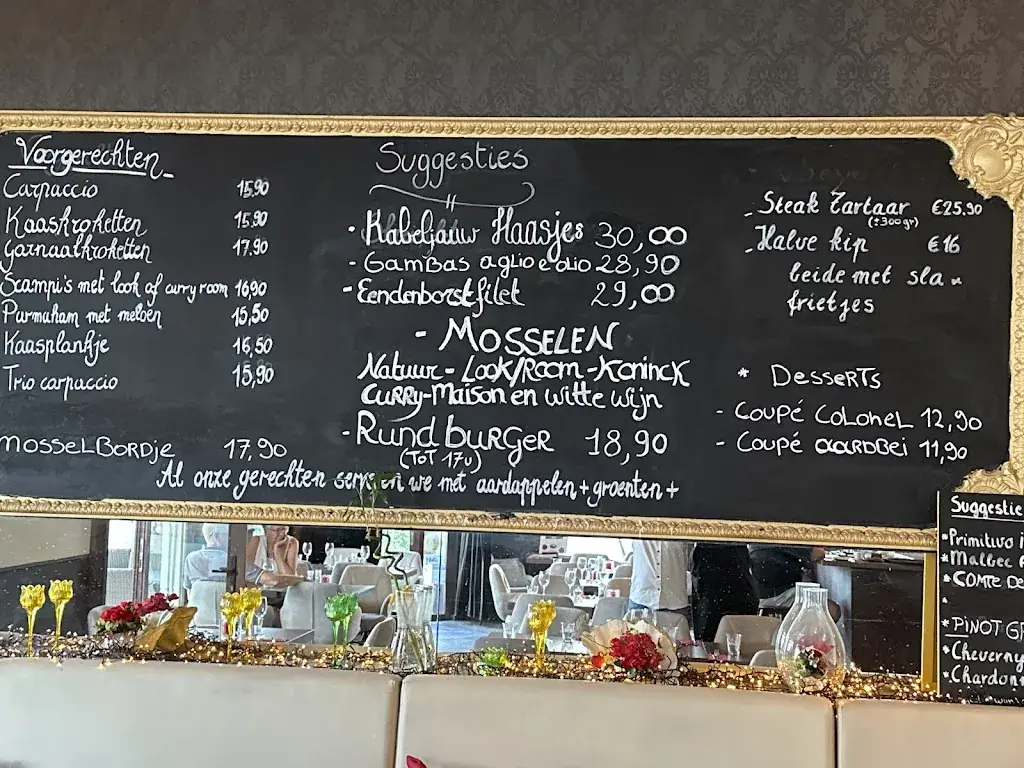 Voorgerechten
Carpaccio 15,90
Kaaskroketten 15,90
Garnaalkroketten 17,90
Scampi's met look of curryroom 16,90
Purmaham met meloen 15,50
Kaasplankje 16,50
Trio carpaccio 15,90
MOSSELBORDje 17,90
Suggesties
- Kabeljauw Haasjes 30,00
- GamBas aglio e olio 28,90
- Eendenborstfilet 29,00
- MOSSELEN
Natuur - Look/Room - Koninck
CURRY-Maison en witte wijn
- Rund burger 18,90
(TOT 17u)
Al onze gerechten serveren we met aardappelen + groenten +
- Steak Tartaar €25.90
(±300gr)
- Halve kip €16
beide met sla
frietjes
* DesseRTs
- Coupé COLONEL 12,90
- Coupé AARDBEI 11,90
Suggestie
*Primitivo
*Malbec
*COMTE DE
*
*PINOT
*Cheverny
*Chardon